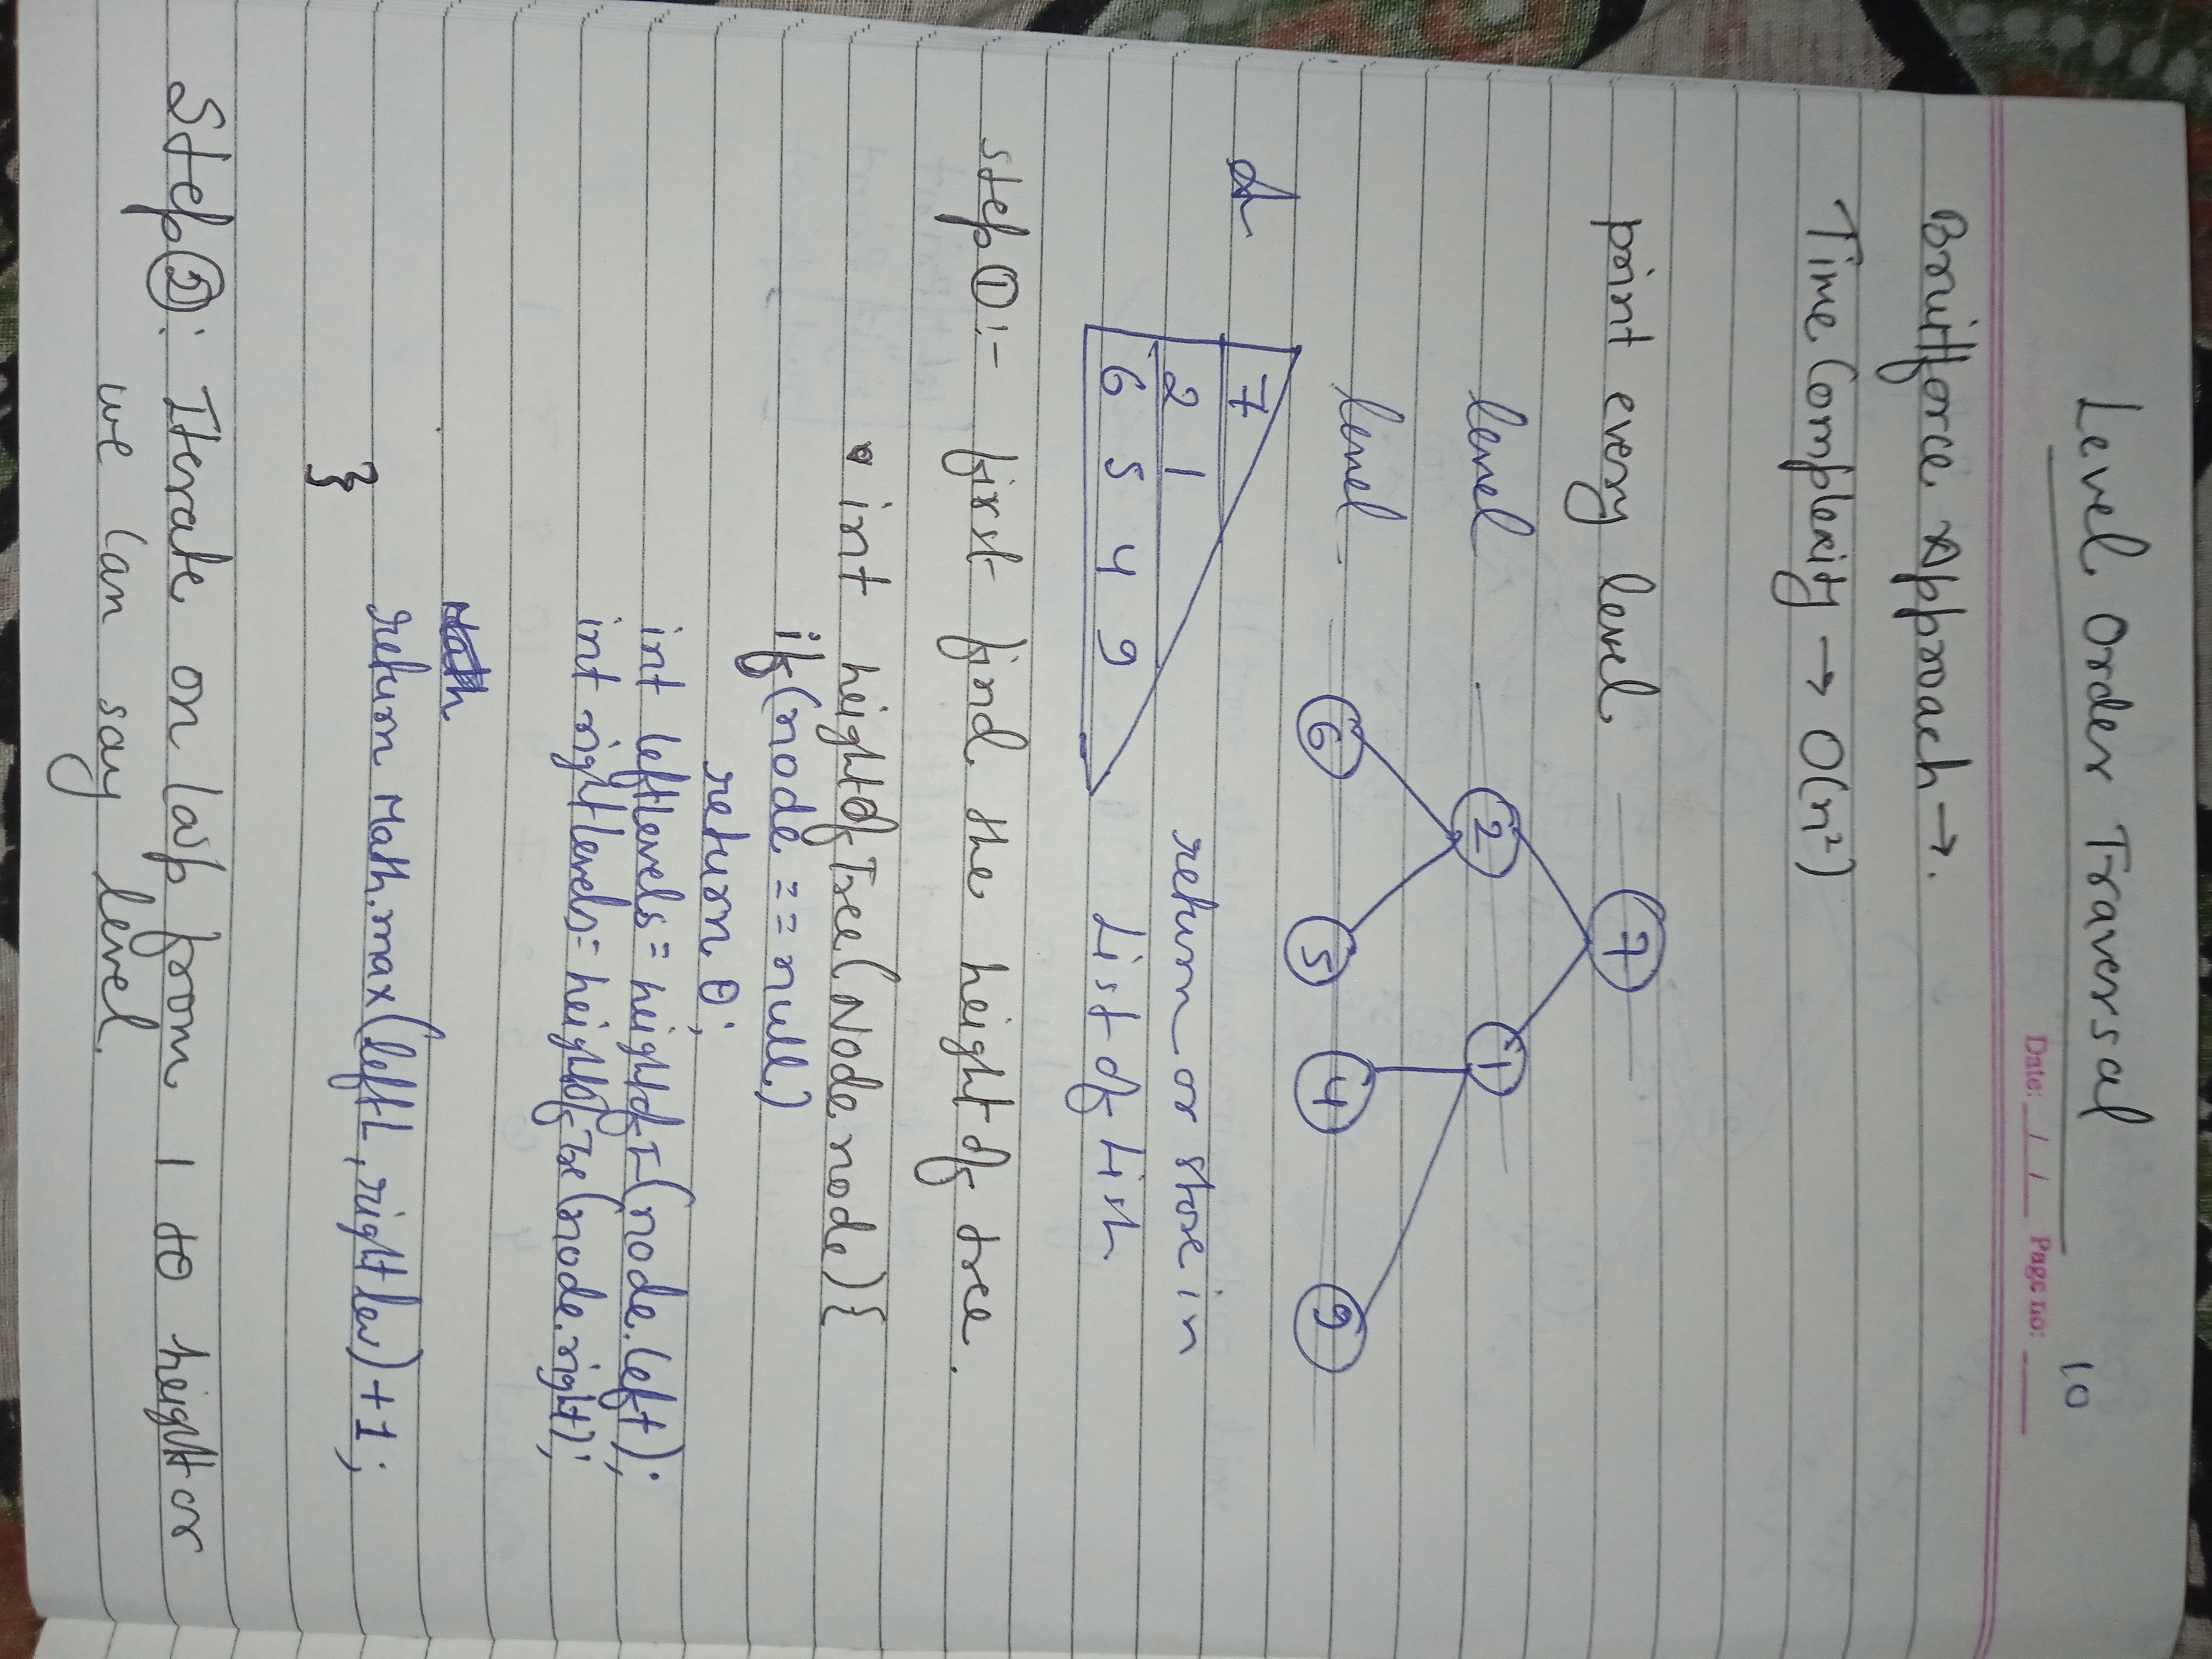 Level Order Traversal
10
Date: / / Page no:
Bruitforce Approach →.
Time Complexity → O(n²)
print every level
7
level
2 1
level
6 5 4 9
7
2 1
6 5 4 9
return or store in
List of List
step ① :- first find the height of tree.
int heightOfTree(Node node){
if(node == null)
return 0;
int leftlevels = heightofT(node.left);
int rightlevels = heightOfTre(node.right);
Math
return Math.max(leftL, rightlev)+1;
}
Step ②: Iterate on loop from 1 to height or
we can say level.